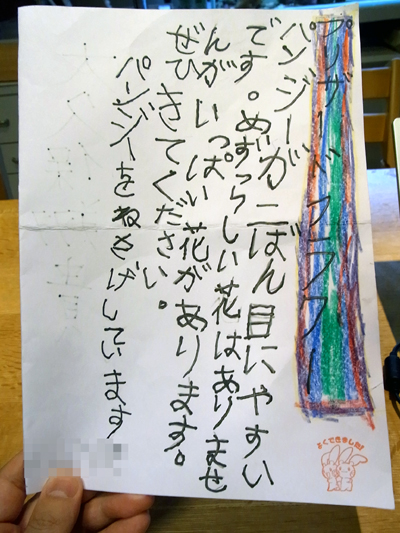 パンジーが二ばん目にやすい
です。めずらしい花はありませ
んがいっぱい花があります。
ぜひきてください。
パンジーをねさげしています
よくできました!